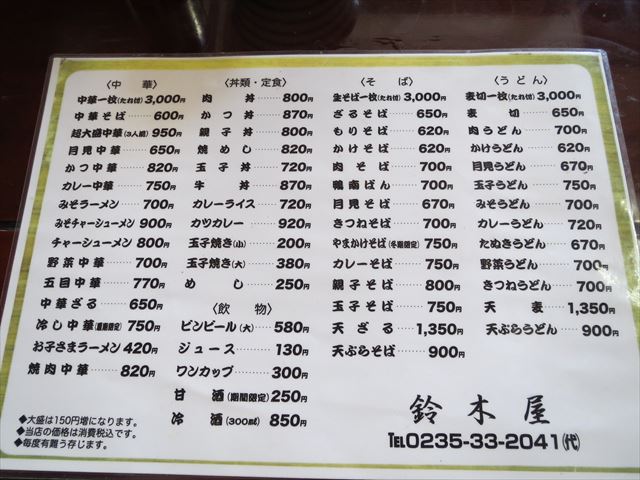 〈中 華〉
中華一枚(たれ付)3,000円
中華そば 600円
超大盛中華(3人前)950円
月見中華 650円
かつ中華 820円
カレー中華 750円
みそラーメン 700円
みそチャーシューメン 900円
チャーシューメン 800円
野菜中華 700円
五目中華 770円
中華ざる 650円
冷し中華(夏期限定)750円
お子さまラーメン 420円
焼肉中華 820円
〈丼類・定食〉
肉 丼 800円
かつ丼 870円
親子丼 800円
焼めし 820円
玉子丼 720円
牛 丼 870円
カレーライス 720円
カツカレー 920円
玉子焼き(小) 200円
玉子焼き(大) 380円
めし 250円
〈飲 物〉
ビンビール(大) 580円
ジュース 130円
ワンカップ 300円
甘 酒(期間限定)250円
冷 酒(300ml) 850円
〈そ ば〉
生そば一枚(たれ付)3,000円
ざるそば 650円
もりそば 620円
かけそば 620円
肉そば 700円
鴨南ばん 700円
月見そば 670円
きつねそば 700円
やまかけそば(冬期限定)750円
カレーそば 750円
親子そば 800円
玉子そば 750円
天ざる 1,350円
天ぷらそば 900円
〈うどん〉
麦切一枚(たれ付)3,000円
麦 切 650円
肉うどん 700円
かけうどん 620円
月見うどん 670円
玉子うどん 750円
みそうどん 700円
カレーうどん 720円
たぬきうどん 670円
野菜うどん 700円
きつねうどん 700円
天 麦 1,350円
天ぷらうどん 900円
◆大盛は150円増になります。
◆当店の価格は消費税込です。
◆毎度有難う存じます。
鈴木屋
TEL0235-33-2041(代)